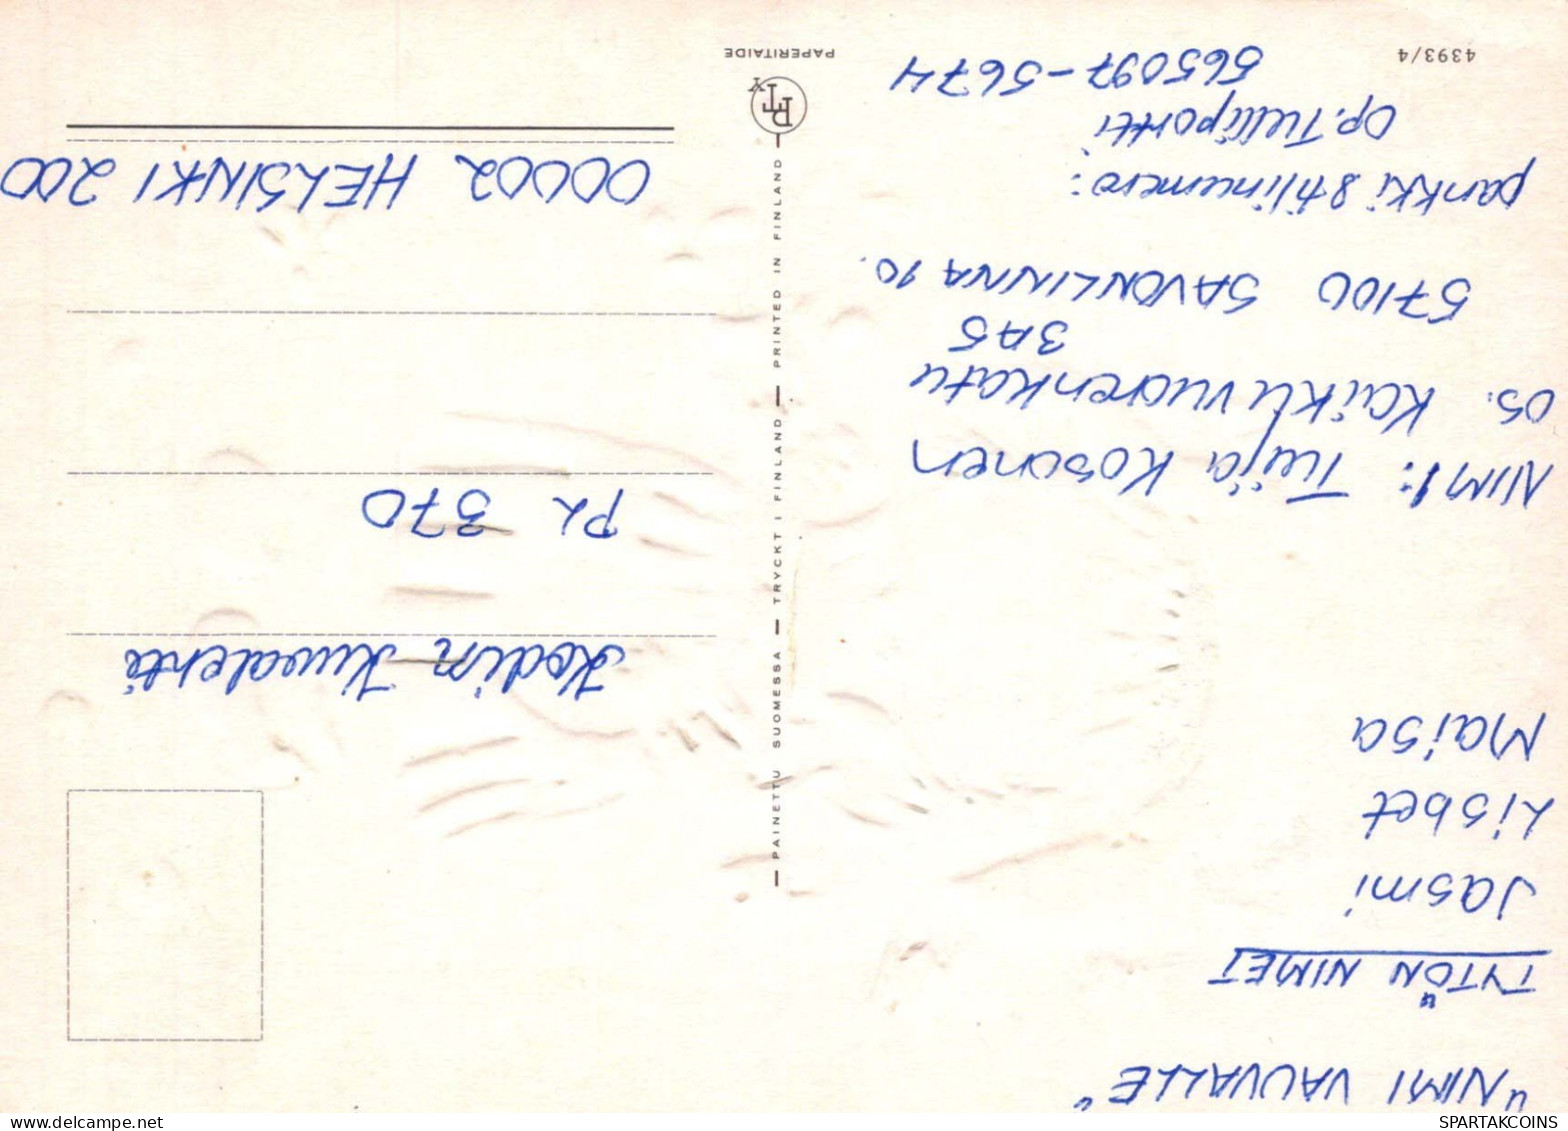 "NIMI VAUVALLE"
TYTÖN NIMET
Jasmi
Lisbet
Maisa
NIMI: Tuija Kosonen
OS. Kaikuvuorenkatu
3A5
57100 SAVONLINNA 10.
pankki & tilinumero:
OP. Tulliportti
565097-5674
4393/4
Kodin Kuvalehti
PL 370
00002 HELSINKI 200
— PAINETTU SUOMESSA — TRYCKT I FINLAND — PRINTED IN FINLAND —
PTY
PAPERITAIDE
SPARTAKCOINS